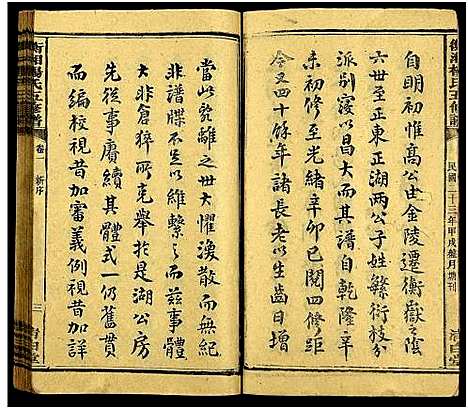 衡湘楊氏五修譜
民國二十三年甲戌歲月鐫刊
清白堂
自明初惟高公世金陵遷衡嶽之陰
六世至正東正湖兩公子姓繁衍枝分
派别寖以昌大其譜自乾隆辛
未初修至光緒辛卯已閱四修距
今又四十餘年諸長老以生齒日增
當此亂離之世大懼渙散而無紀
非譜牒不足以維繫之而茲事體
大非倉猝所克舉於是湖公房
先從事賡續其體式一仍舊貫
而編校視昔加審義例視昔加詳
衡湘楊氏五修譜
卷一
新序
三
清白堂